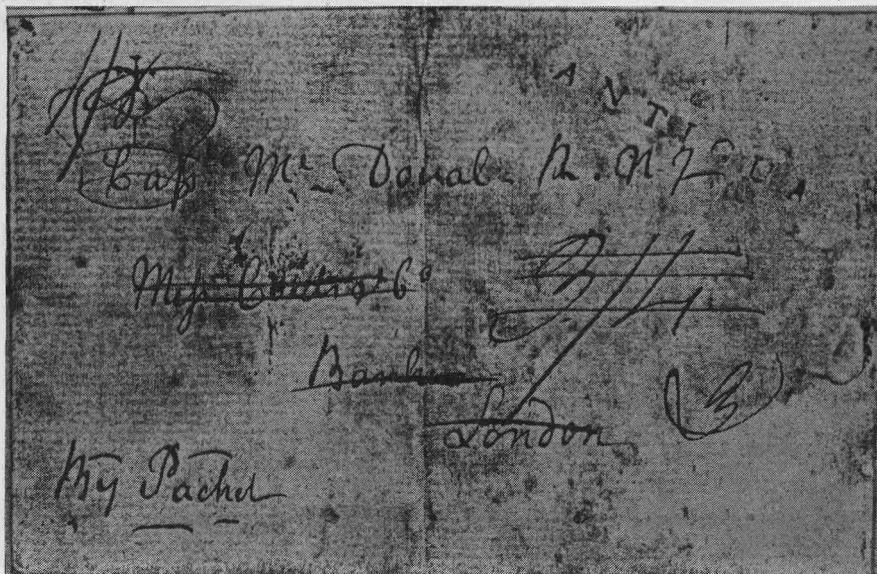 ANTIGUA
Capt Mc Doual R. N.
Messrs Coutts & Co
Bankers
London
By Packet